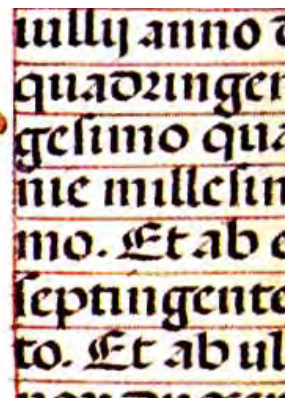 iullij anno
quadringen
gesimo qua
nie millesim
mo. Et ab e
septingente
to. Et ab ul